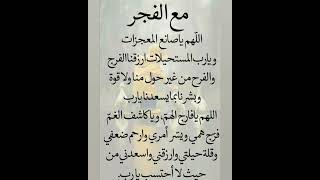 مع الفجر
اللهم ياصانع المعجزات
ويارب المستحيلات ارزقنا الفرج
والفرح من غير حول منا ولا قوة
وبشرنا بما يسعدنا يارب
اللهم يافارج الهم، وياكاشف الغم
فرج همي ويسر أمري وارحم ضعفي
وقلة حيلتي وارزقني واسعدني من
حيث لا أحتسب يارب